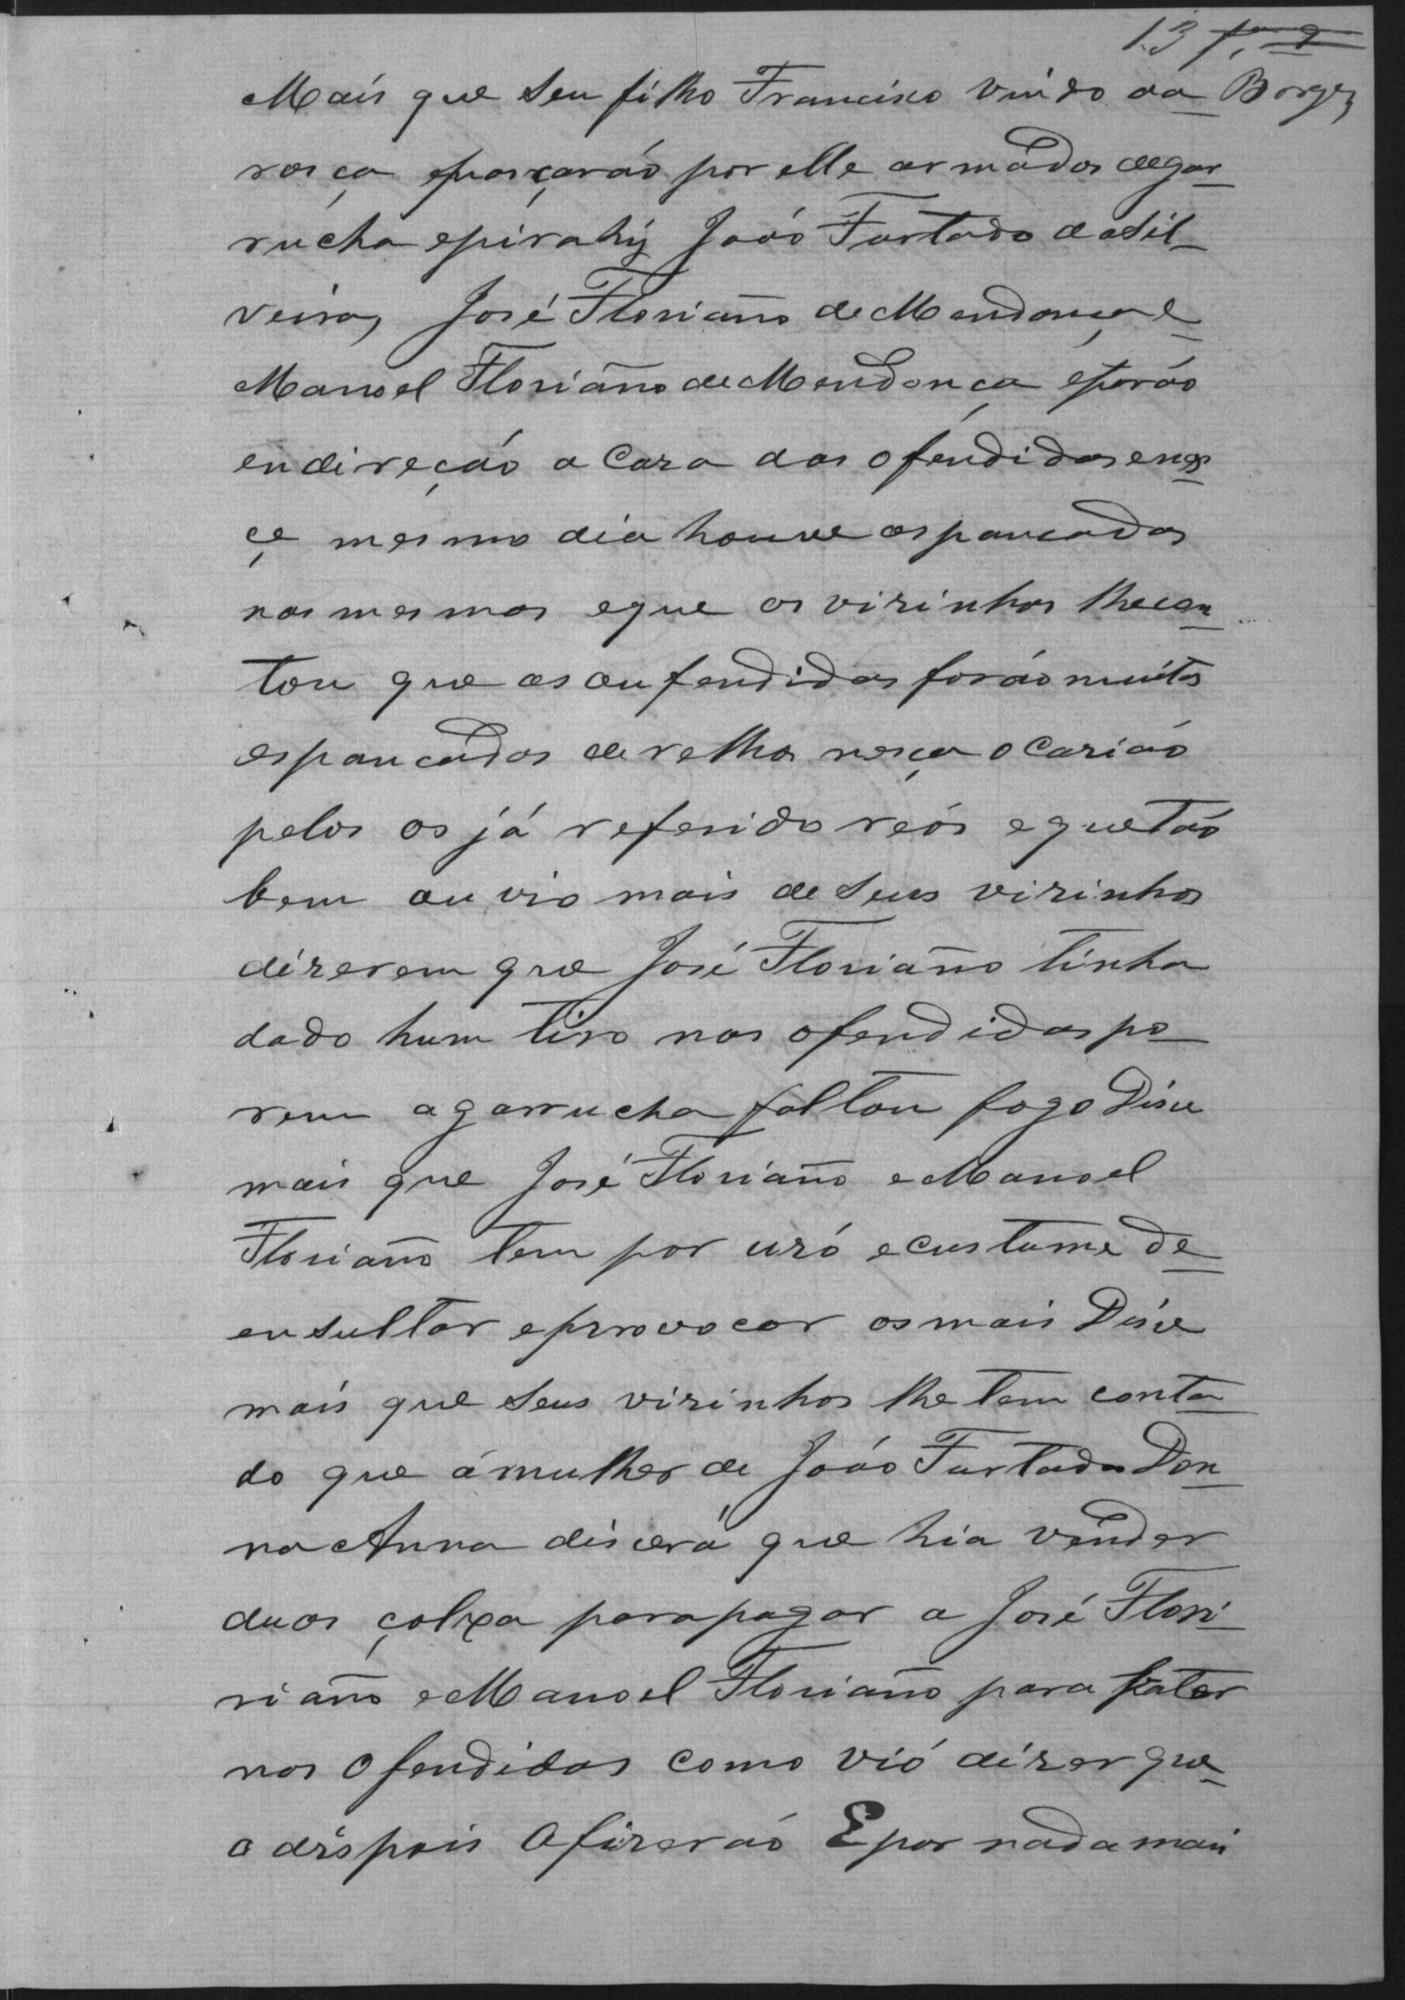 13
Borges
Mais que seu filho Francisco vindo da
rosça epasçarão por elle armados degar
rucha epirahý João Furtado daSil
veira, José Floriaño de Mendonça e
Manoel Floriaño de Mendonça eforão
endireção a Caza dos ofendidos enes
çe mesmo dia houve espancadas
nos mesmos eque os vizinhos lhecon
tou que os oufendidos forão muitos
espancádos de relho nesça ocazião
pelos os já referido reós eque tão
bem ouvio mais de seus vizinhos
dizerem que José Floriaño tinha
dado hum tiro nos ofendidos po
rem agarrucha faltou fogo Disce
mais que José Floriaño e Manoel
Floriaño tem por uzó ecustume de
ensultar eprovocar osmais Disce
mais que seus vizinhos lhe tem conta
do que ámulher de João Furtado Don
na Anna discerá que hia vender
duas çolxa parapagar a José Flori
riaño e Manoel Floriaño para bater
nos Ofendidos como vió dizer que
o dispois Ofizerão E por nada mais